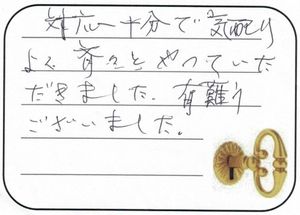 対応十分で気配り
よく 着々とやっていた
だきました。有難う
ございました。